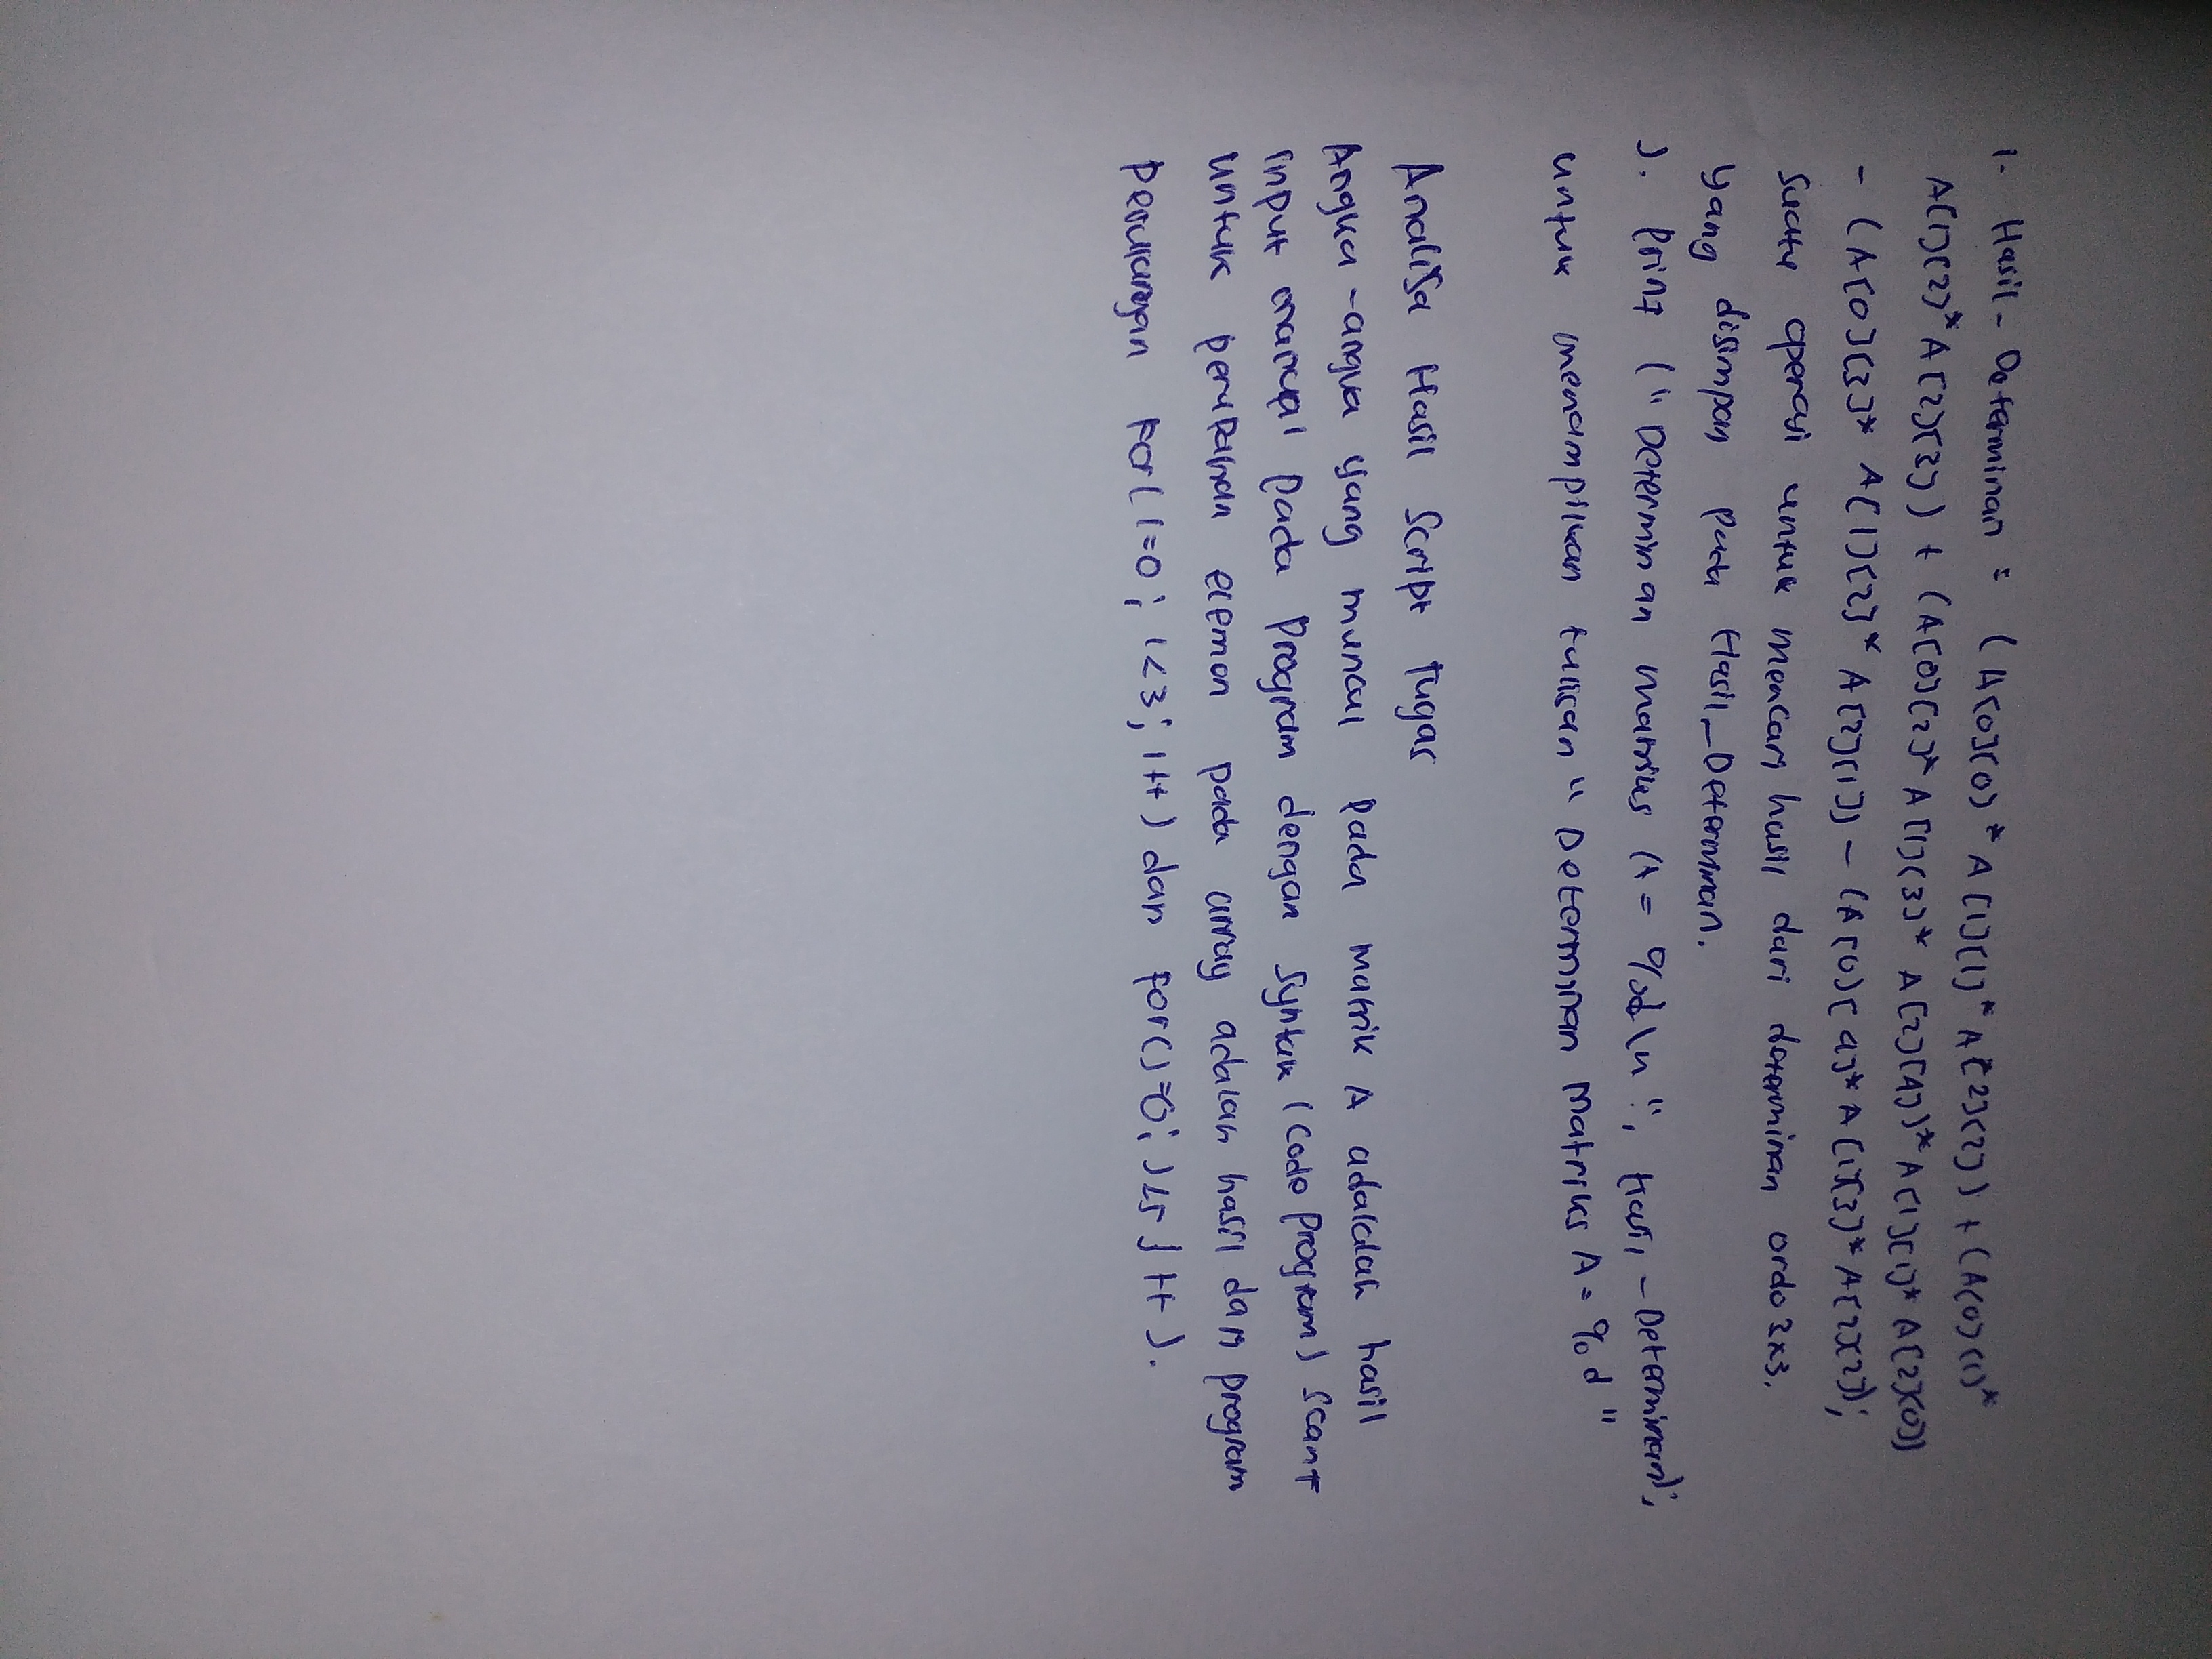 1. Hasil - Determinan = (A[0][0] * A[1][1] * A[2][2]) + (A[0][1] *
A[1][2] * A[2][3]) + (A[0][2] * A[1][3] * A[2][4]) * A[1][1] * A[2][0])
- (A[0][3] * A[1][2] * A[2][1]) - (A[0][4] * A[1][3] * A[2][2]);
Suatu operasi untuk mencari hasil dari determinan ordo 3x3.
yang disimpan pada Hasil_Determinan.
J. Print ("Determinan matriks A = %d\n", Hasil - Determinan);
untuk menampilkan tulisan "Determinan Matriks A = %d"
Analisa Hasil Script tugas
Angka - angka yang muncul pada matrik A adalah hasil
input manual pada program dengan syntax (code program) scanf
untuk perubahan elemen pada array adalah hasil dari program
perulangan for(i=0; i<3; i++) dan for(j=0; j<5 j++).